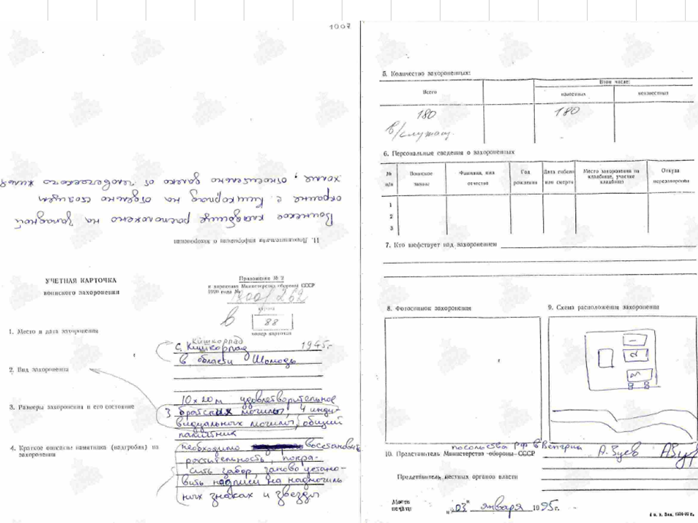 1007
11. Дополнительная информация о захоронении
Военное кладбище расположено на западной
окраине с. Кишкорпад на отдельно стоящем
холме, относительно далеко от человеческого жилья
УЧЕТНАЯ КАРТОЧКА
воинского захоронения
Приложение № 2
к директиве Министерства обороны СССР
1990 года №
В
88
номер карточки
1. Место и дата захоронения
Кишкорпад
с. Кишкорпад 1945 г.
в области Шомодь
2. Вид захоронения
3. Размеры захоронения и его состояние
10х20м удовлетворительное
3 братских могилы, 4 инди-
видуальных могилы, общий
памятник
4. Краткое описание памятника (надгробия) на
захоронении
Необходимо восстановить
растительность, покра-
сить забор, заново устано-
вить надписи на надгробь-
ных знаках и звезды
5. Количество захороненных:
Всего
В том числе:
известных
неизвестных
180
180
в/служащ.
6. Персональные сведения о захороненных
№
п/п
Воинское
звание
Фамилия, имя
отчество
Год
рождения
Дата гибели
или смерти
Место захоронения на
кладбище, участке
кладбища
Откуда
перезахоронен
1
2
3
7. Кто шефствует над захоронением
8. Фотоснимок захоронения
9. Схема расположения захоронения
посольства РФ в Венгрии
10. Представитель Министерства обороны СССР
А. Зуев
Представитель местных органов власти
Место
печати
„03" января 1995г.